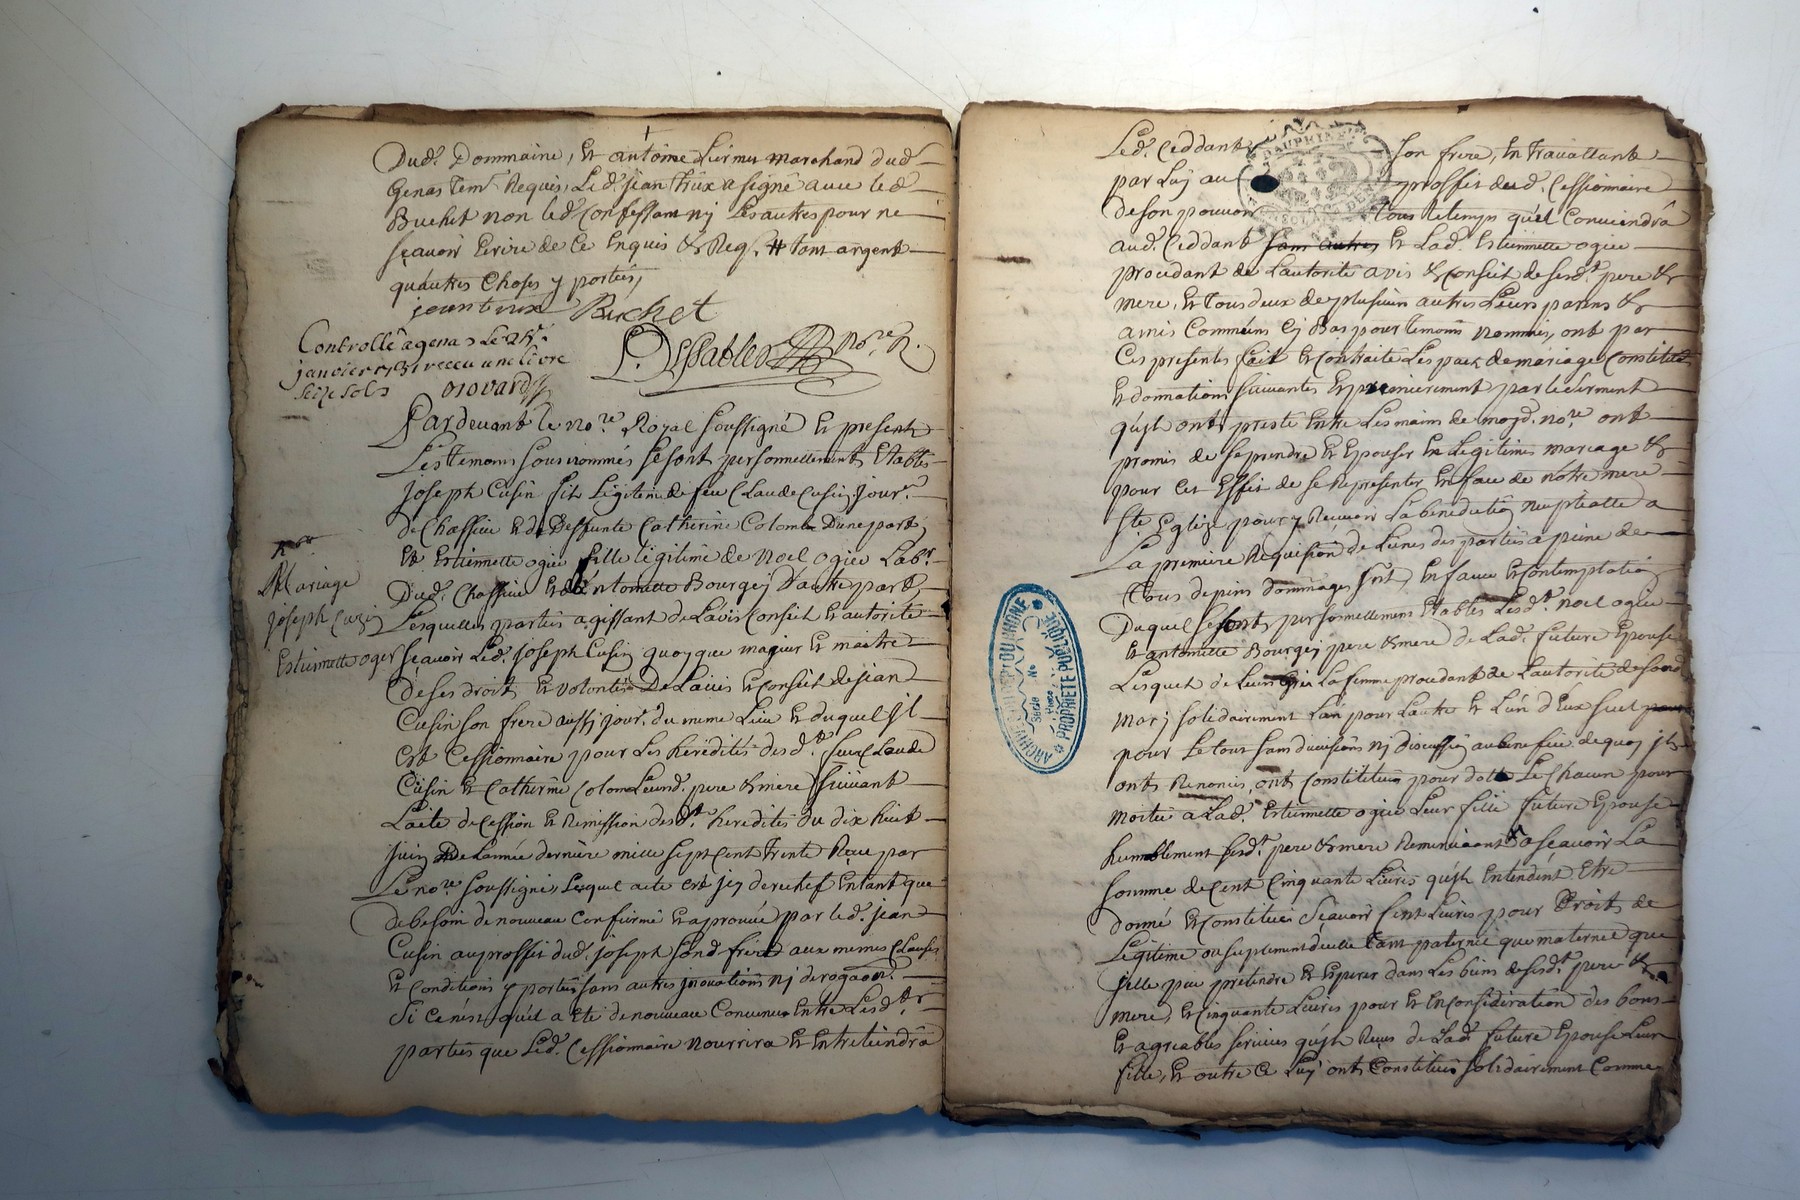 Dud. Dommaine, Et antoine Liermet marchand dud
Genas tem. Requis, Led. jean trux a signé avec le d
Buchet non led. Confessant nj Les autres pour ne
sçavoir Ecrire de Ce Enquis & Req. # tant argent
qu'autres Choses y portées,
jean trux Buchet
Controllé a genas Le
janvier 1731 receu une livre
seize sols
Dessables No.re R.
Pardevant le no.re Royal soussigné Et present
Les temoins sousnommés se sont personnellement Etablis
joseph Cusin fils Legitime de feu Claude Cusin jour.
de Chassieu Et de Deffunte Catherine Colomb D'une part,
Et Estiennette ogier fille legitime de Noel ogier Lab.r
Dud. Chassieu Et d'antoinette Bourgey D'autre part,
Lesquelles parties agissant de L'avis Conseil Et autorité
Mariage
joseph Cuzin
Estiennette oger
sçavoir Led. joseph Cusin quoyque majeur Et maitre
de ses droits Et volontés De L'avis Et Conseil de jean
Cusin son frere aussj jour. du meme Lieu Et duquel jl
est Cessionnaire pour Les hérédités desd.ts feux Claude
Cusin Et Catherine Colomb Leursd. pere & mere suivant
L'acte de Cession Et Remission desd.ts heredités du dix huit
juin De L'année derniere mille sept Cent trente Reçu par
Le no.re soussigné, Lequel acte est jcy derechef En tant que
de besoin de nouveau Confirmé Et aprouvé par led. jean
Cusin au proffit dud. joseph son d. frere aux memes Clauses
Et Conditions y portées sans autres jnovations nj derogaon.
Si ce n'est qu'il a Eté de nouveau Convenu Entre Lesd.tes
parties que Led. Cessionnaire nourrira Et Entretiendra
Led. Ceddant son frere, En travaillant
par Luy au proffit dud. Cessionnaire
de son pouvoir tous le temps qu'il Conviendra
aud. Ceddant sans autres Et Lad. Estiennette ogier
procedant de L'autorité avis & Conseil de sesd.ts pere &
mere, Et tous deux de plusieurs autres Leurs parens &
amis Communs Cy Bas pour temoins nommés, ont par
Ces presentes fait Et Contracté Les pacts de mariage Constitution
Et donnations suivantes Et premierement par le serment
qu'jls ont presté Entre Les mains de moyd. no.re ont
promis de se prendre Et Epouser En Legitime mariage &
pour Cet Effet de se Representer En face de notre mere
Ste Eglize pour y Recevoir La benediction nuptialle a
La premiere Requision de L'une des parties a peine de
tous depens dommages jnt, En faveur Et Contemplation
Duquel se sont personnellement Etablis Lesd.ts noel ogier
Et antoinette Bourgey pere & mere de Lad. future Epouse
Lesquels de Leurs gres La femme procedant de L'autorité de sond
mary solidairement L'un pour L'autre Et L'un d'Eux seul pour
pour Le tout sans division nj discussion au benefice de quoy jls
ont Renoncés, ont Constitués pour dotte Le Chacun pour
moitié a Lad. Estiennette ogier Leur fille future Epouse
humblement sesd.ts pere & mere Remerciant a sçavoir La
somme de Cent Cinquante Livres qu'jls Entendent Etre
donné Et Constitué sçavoir Cent Livres pour Droits de
Legitime ou suplement d'icelle tant paternel que maternel que
fille peu pretendre Et Esperer dans Les biens de sesd.ts pere &
mere, Et Cinquante Livres pour Et En Consideration des bons
Et agreables services qu'jls Reçus de Lad. future Epouse Leur
fille, Et outre Ce Luy ont Constitués solidairement Comme
DAUPHINE
ARCHIVES DU DEPT DU RHONE
PROPRIETE PUBLIQUE